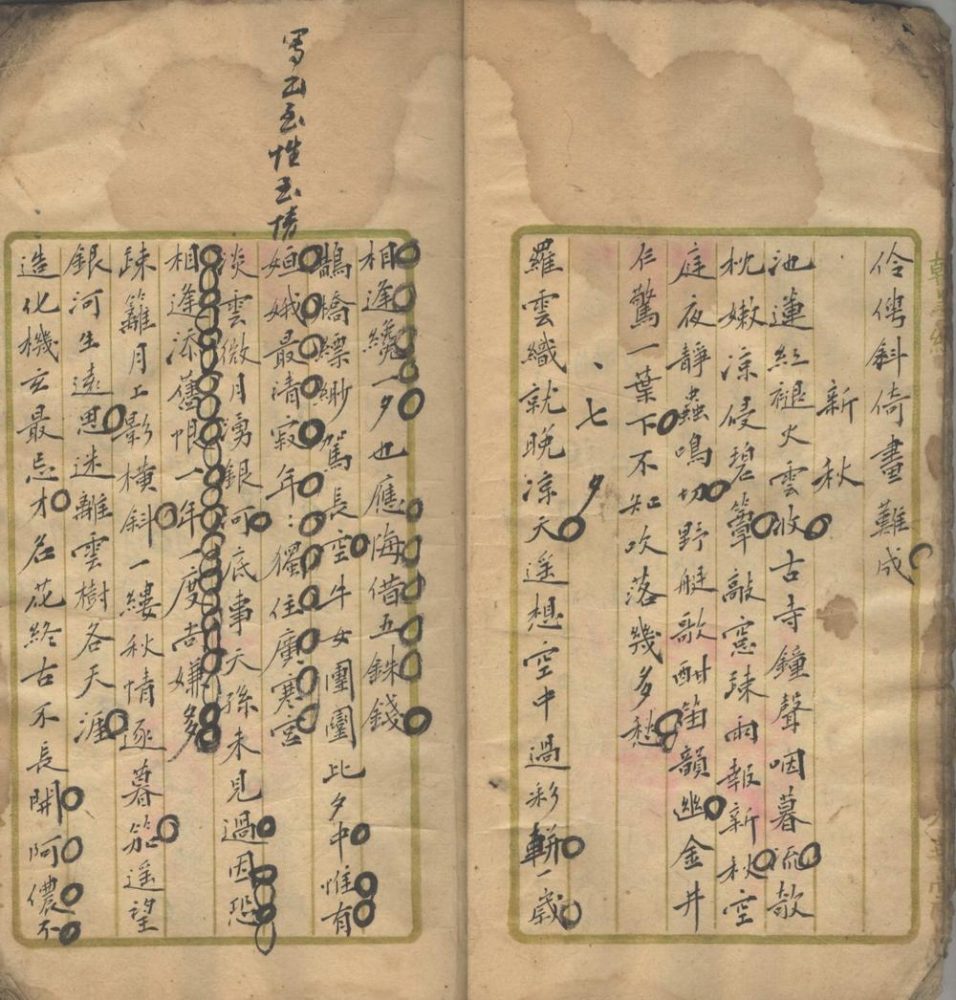 伶俜斜倚畫難成
新秋
池蓮紅褪火雲收古寺鐘聲咽暮流欹
枕嫩涼侵碧簟敲窓疎雨報新秋空
庭夜靜蟲鳴切野艇歌酣笛韻幽金井
仁驚一葉下不知吹落幾多愁
、七夕
羅雲織就晚涼天遥想空中過彩軿一歲
相逢纔一夕也應悔借五銖錢
鵲橋縹緲駕長空牛女團圞比夕中惟有
姮娥最清寂年：獨住廣寒宮
淡雲微月湧銀河底事天孫未見過因恐
相逢添舊恨一年一度尚嫌多
疎籬月上影橫斜一縷秋情逐暮笳遥望
銀河生遠思迷離雲樹各天涯
造化機玄最忌才名花終古不長開阿儂不
至性至情